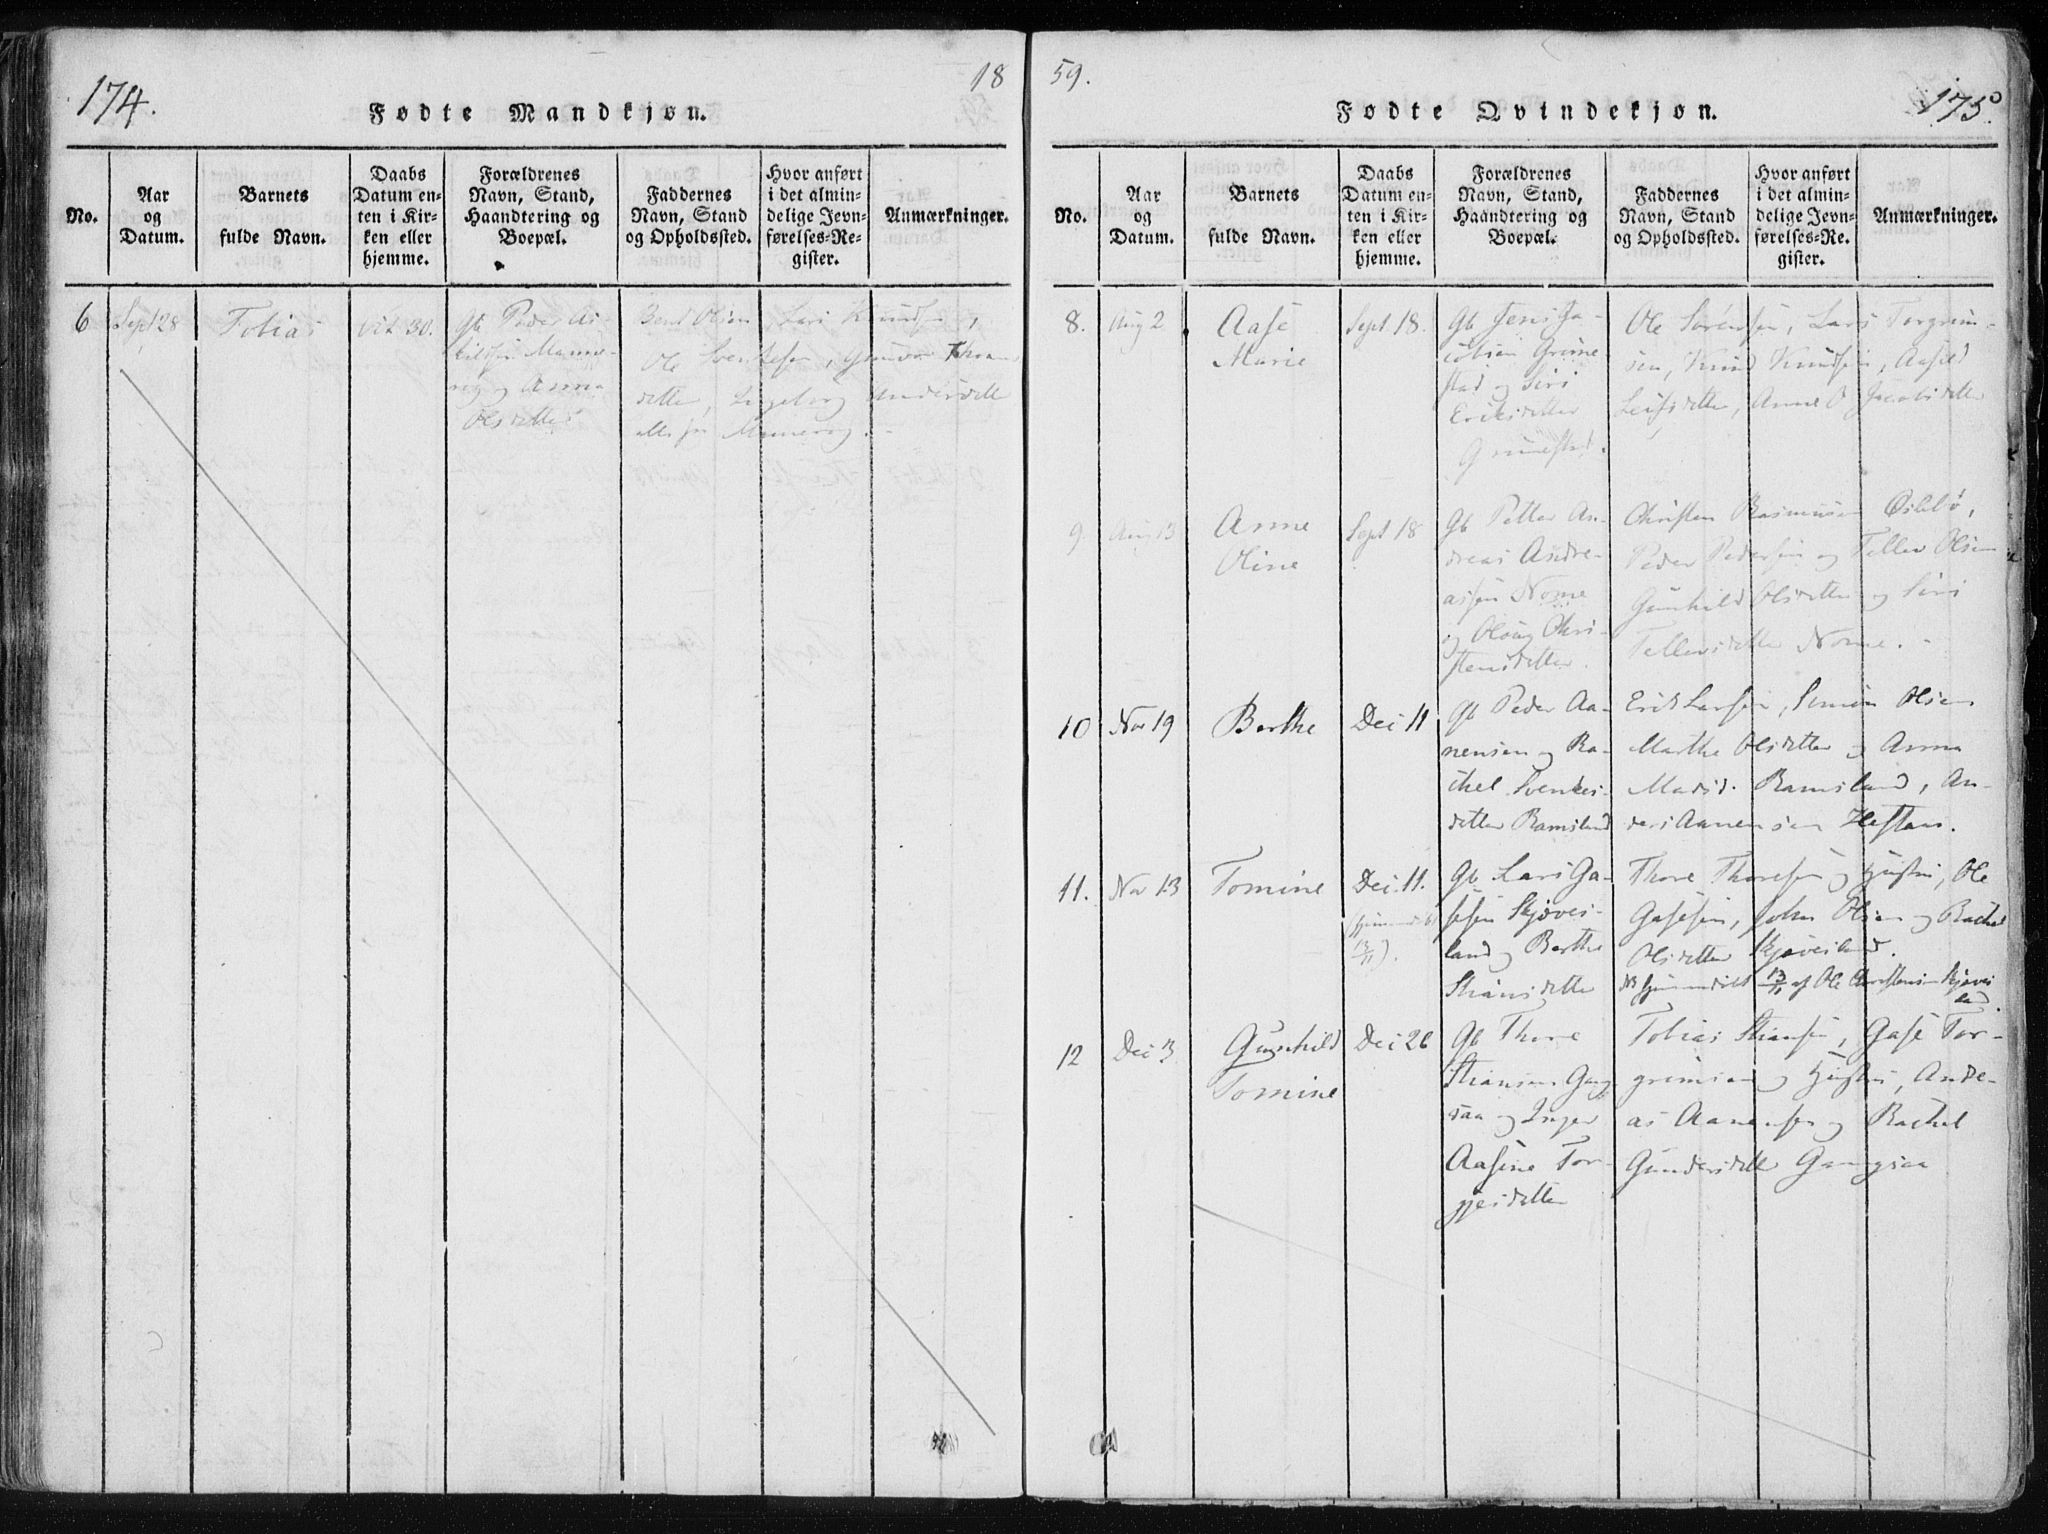 174.
18
Fødte Mandkjøn.
No.
Aar og Datum.
Barnets fulde Navn.
Daabs Datum enten i Kirken eller hjemme.
Forældrenes Navn, Stand, Haandtering og Boepæl.
Faddernes Navn, Stand og Opholdssted.
Hvor anført i det almindelige Jevnførelses-Register.
Anmærkninger.
6
Sept 28
Tobias
Okt 30.
Gb Peder As-
og Anna
Olsdatter
Bent Olsen, Lars Knudsen,
Ole Svendsen, Gunvor
datter, Ingeborg Andersdatter
59.
175
Fødte Qvindekjøn.
No.
Aar og Datum.
Barnets fulde Navn.
Daabs Datum enten i Kirken eller hjemme.
Forældrenes Navn, Stand, Haandtering og Boepæl.
Faddernes Navn, Stand og Opholdssted.
Hvor anført i det almindelige Jevnførelses-Re. gister.
Anmærkninger.
8.
Aug 2
Aase
Marie
Sept 18.
Gb Jens Ja-
cobsen Grime
stad og Siri
Eriksdatter
Grimestad.
Ole Sørensen, Lars Torgrim-
sen, Knud Knudsen, Aasild
Leifsdatter, Anne O Jacobsdatter
9.
Aug 13
Anne
Oline
Sept 18
Gb Petter An-
dreas Andre-
assen Nome
og Oloug Chri-
stensdatter.
Christen Rasmusen Øslebø,
Peder Pedersen og Tellev Olsen
Gunhild Olsdatter og Siri
Tellevsdatter Nome.
10
Nov 19
Berthe
Dec 11
Gb Peder Aa-
nensen og Ra-
chel Svenkes-
datter Ramsland
Erik Larsen, Simon Olsen
Marthe Olsdatter og Anna
Madsd. Ramsland, An-
ders Aanensen Heftan.
11.
Nov 13
Tomine
Dec. 11.
13/11).
Gb Lars Ga-
sesen Skjøves-
land og Berthe
Stiansdatter
Thore Thoresen og Hustru, Ole
Gasesen, John Olsen og Rachel
Olsdatter Skjøvesland.
NB hjemmedøbt 13/11 af Ole Christensen Skjøves
land.
12
Dec 3
Gunhild
Tomine
Dec 26
Gb Thore
Stiansen Gang
saa og Inger
Aasine Tor-
gjesdatter
Tobias Stiansen, Gase Tor-
grimsen og Hustru, Andre-
as Aanensen og Rachel
Gundersdatter Gangsaa